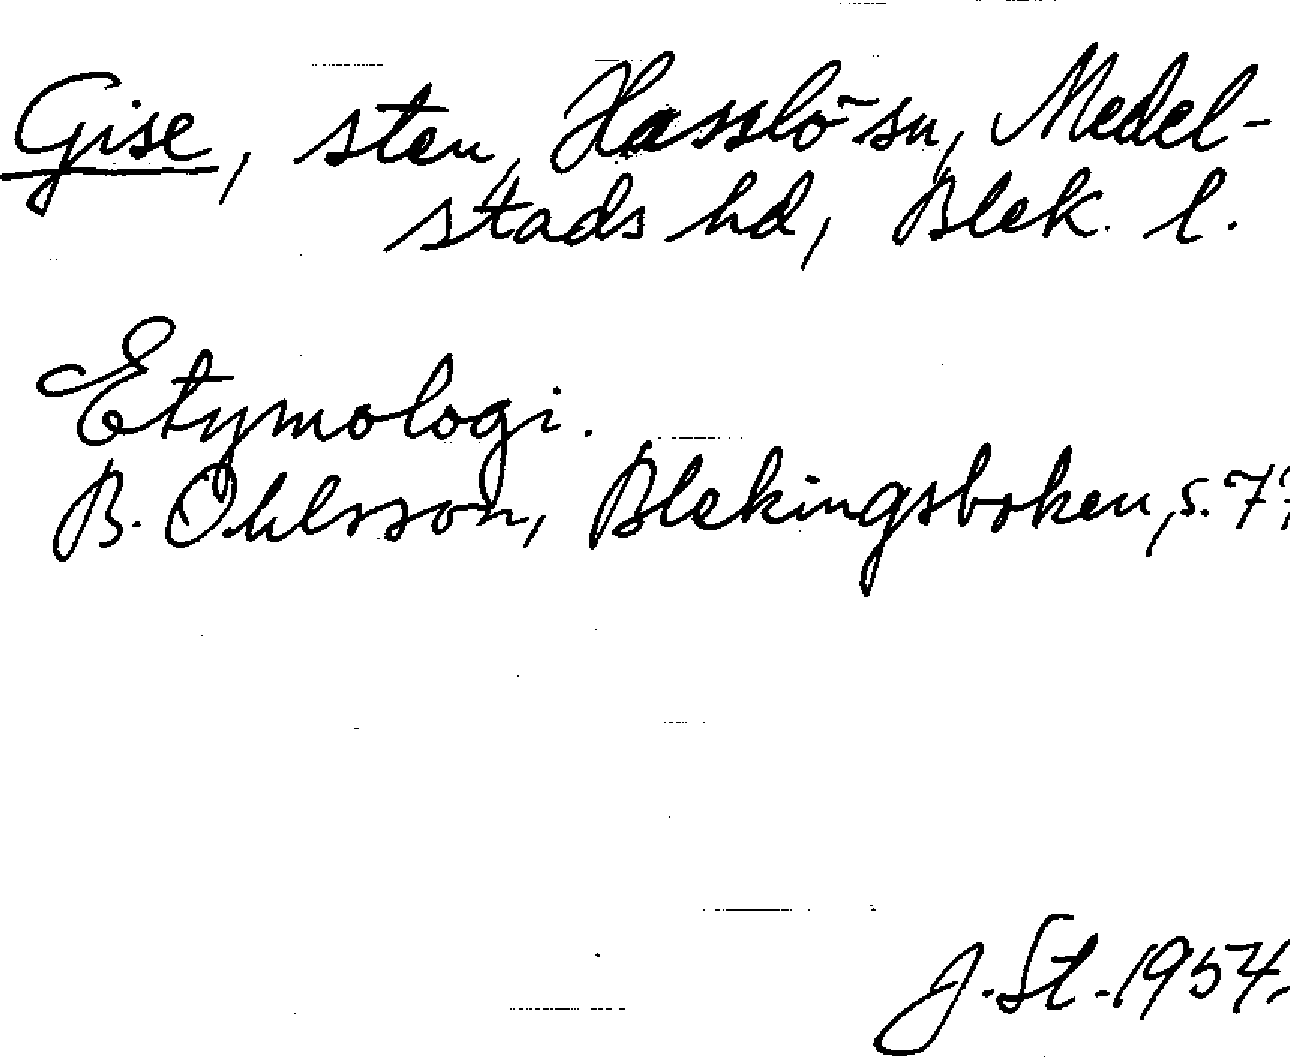 Gise, sten, Hasslö sn, Medel-
stads hd, Blek. l.
Etymologi.
B. Ohlsson, Blekingsboken, s. 77
J. St. 1957.